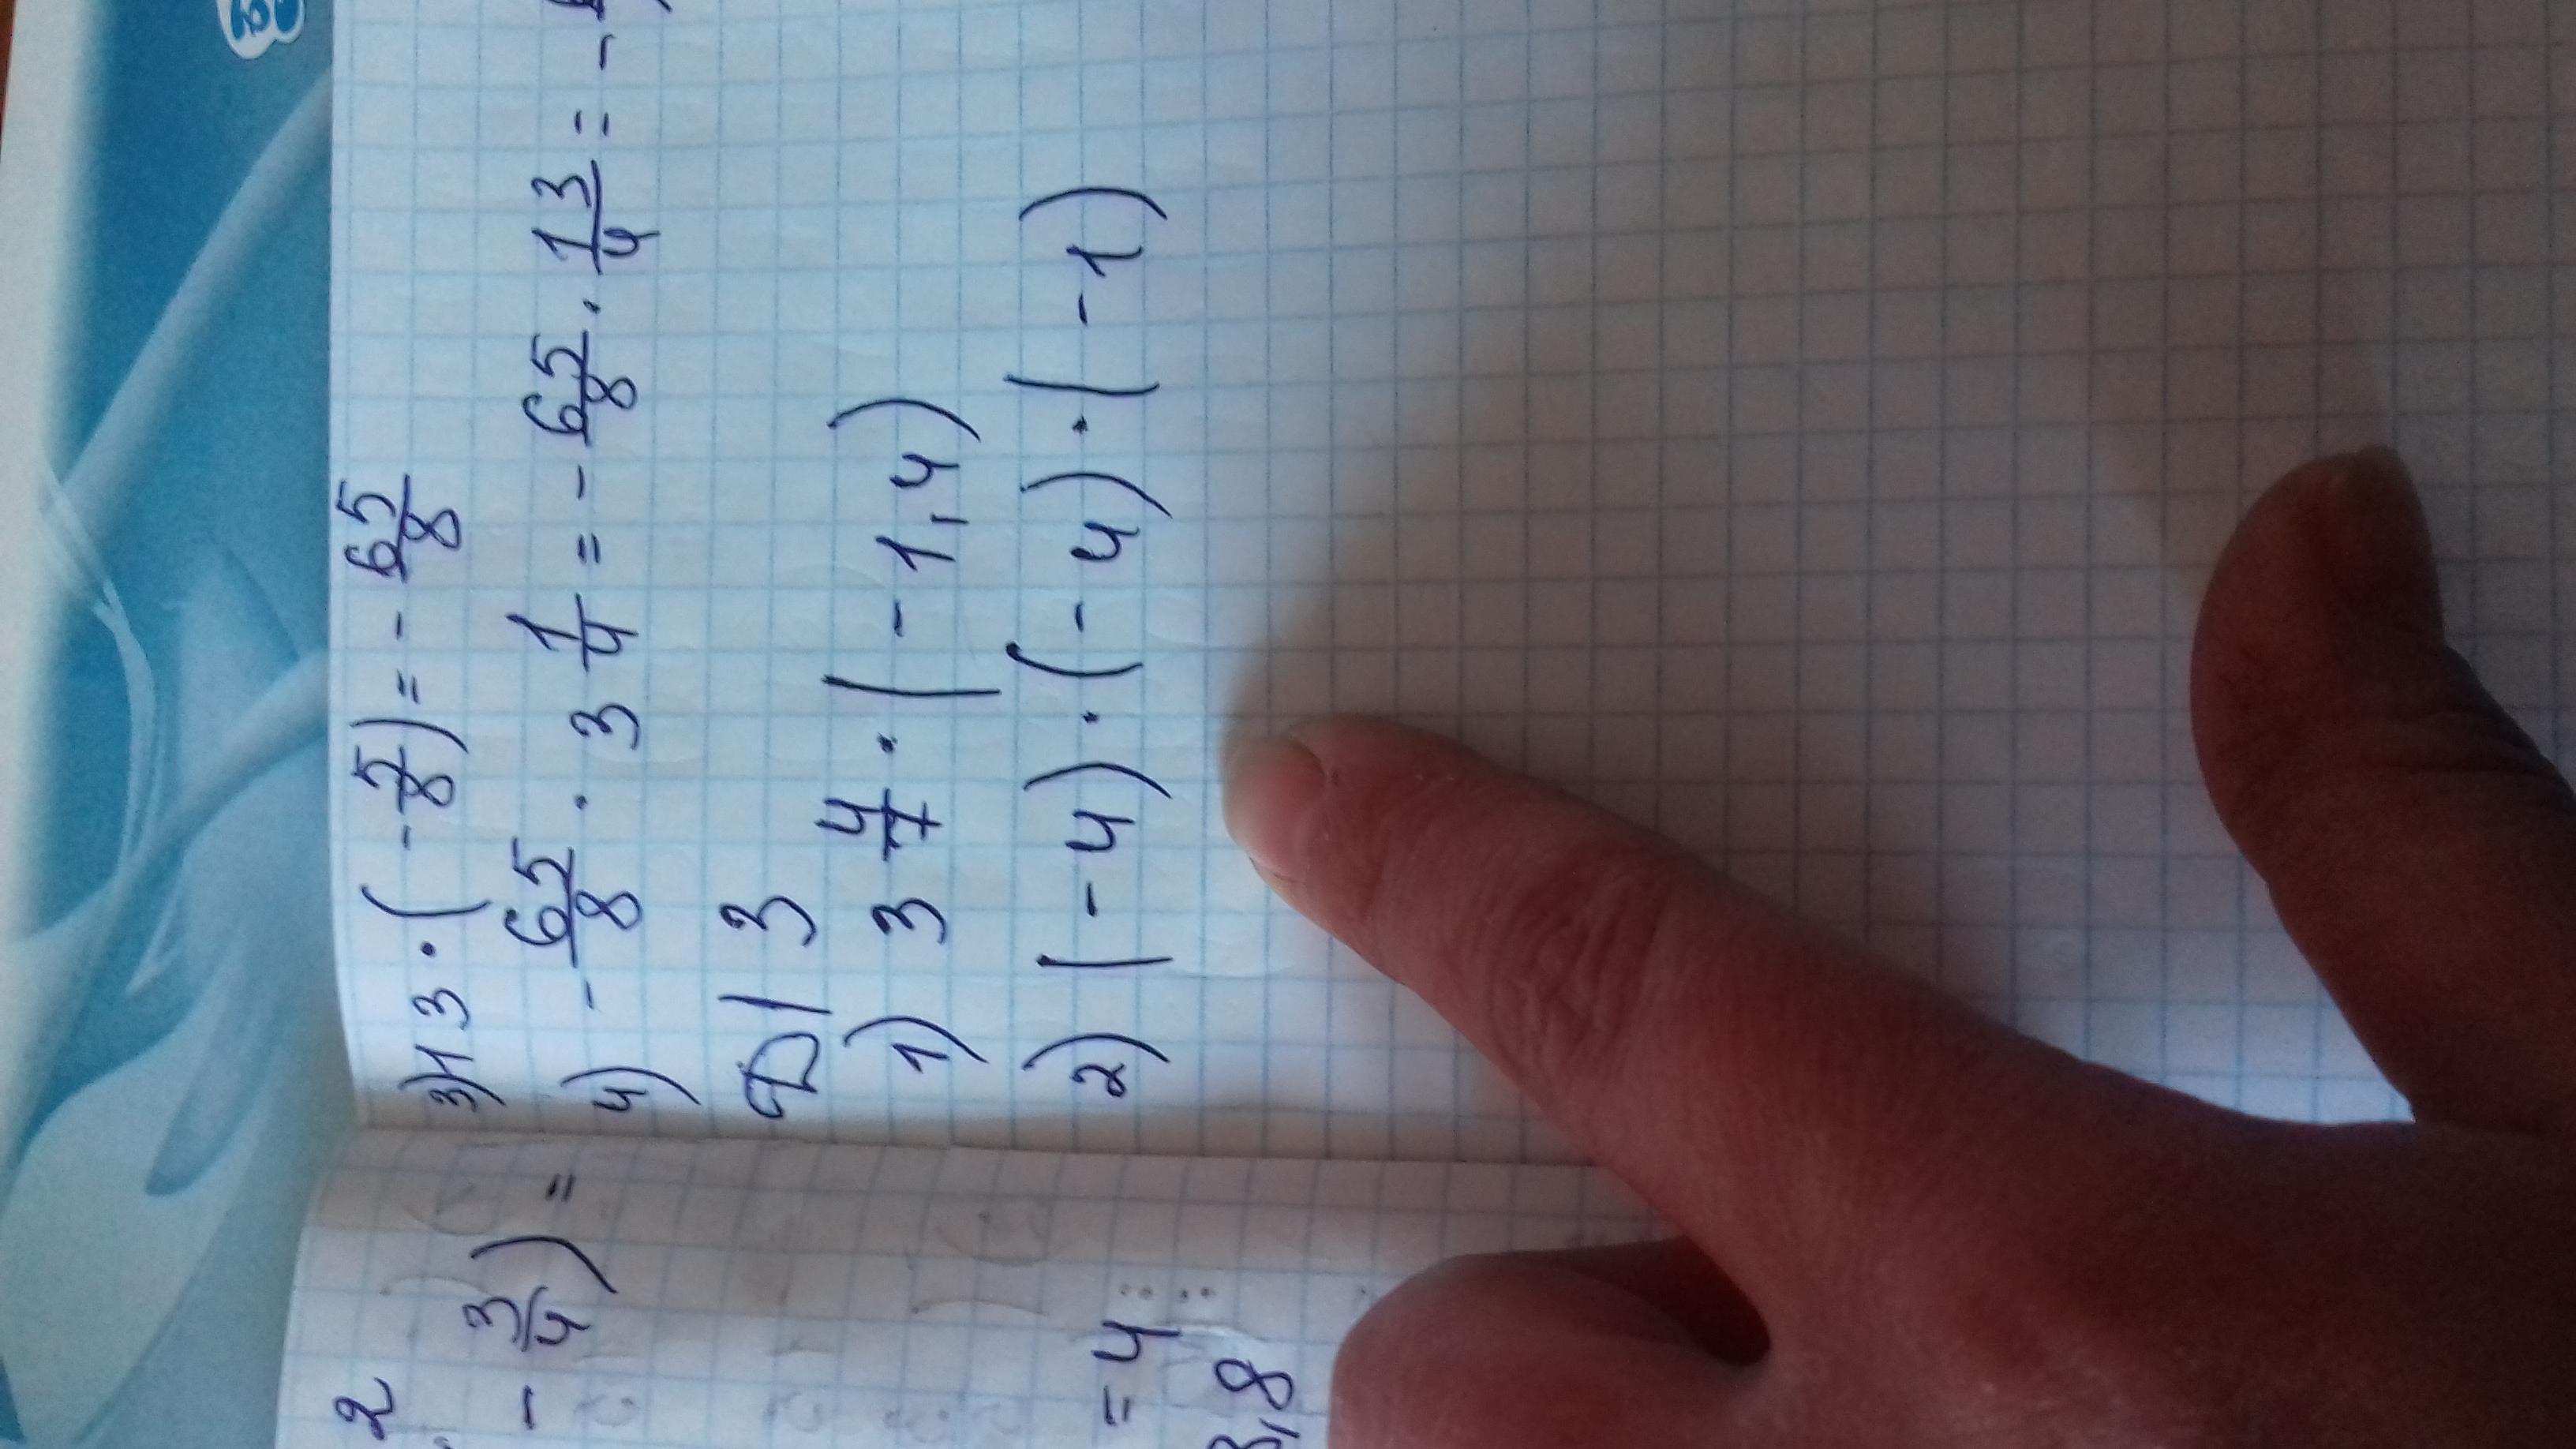 2
- 3/4) =
= 4
3,8
3) 13 · ( - 5/8) = - 65/8
4) - 65/8 · 3 1/4 = - 65/8 · 13/4 = -
Д/З
1) 3 4/7 · ( - 1,4)
2) ( - 4) · ( - 4) · ( - 1)